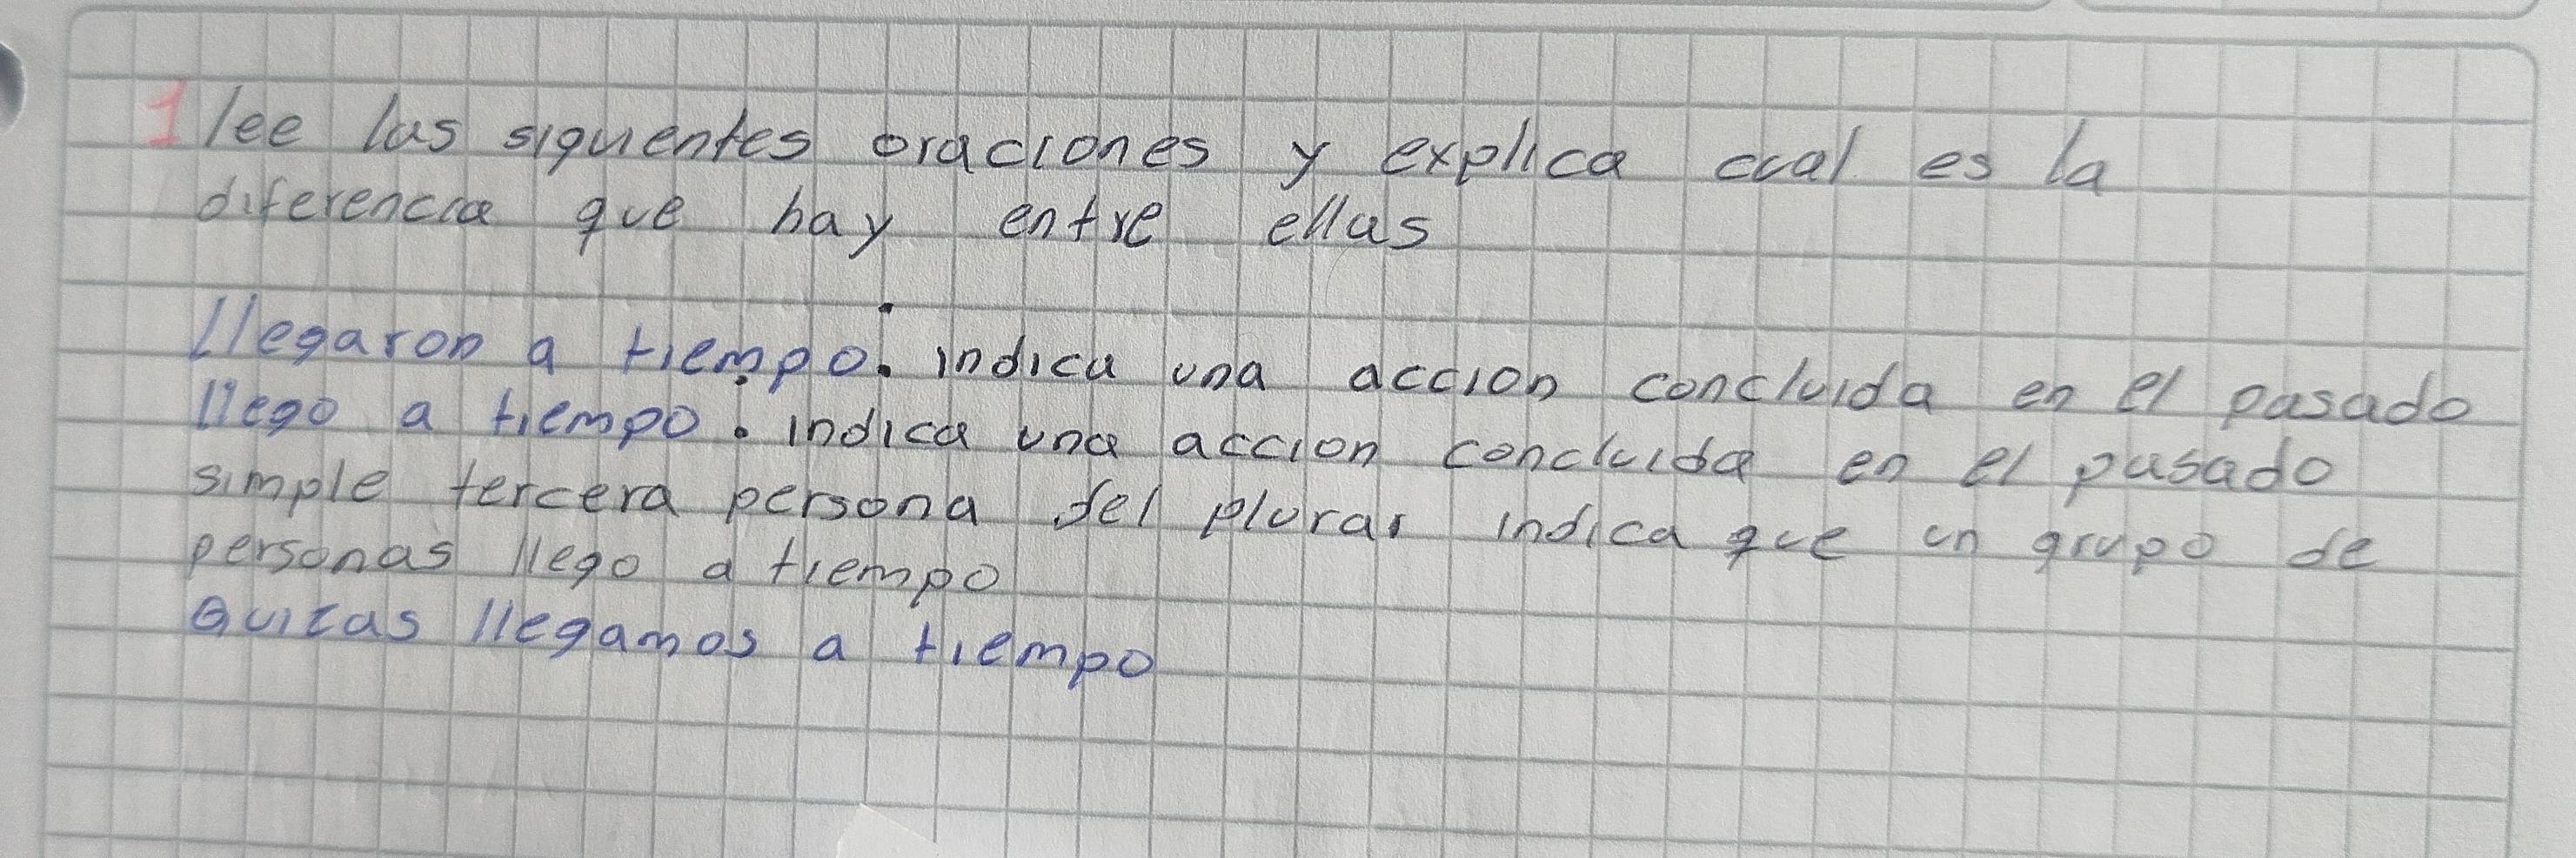 1 lee las siguientes oraciones y explica cual es la
diferencia que hay entre ellas
llegaron a tiempo: indica una accion concluida en el pasado
llego a tiempo: indica una accion concluida en el pasado
simple tercera persona del plurar indica que un grupo de
personas llego a tiempo
Quizas llegamos a tiempo